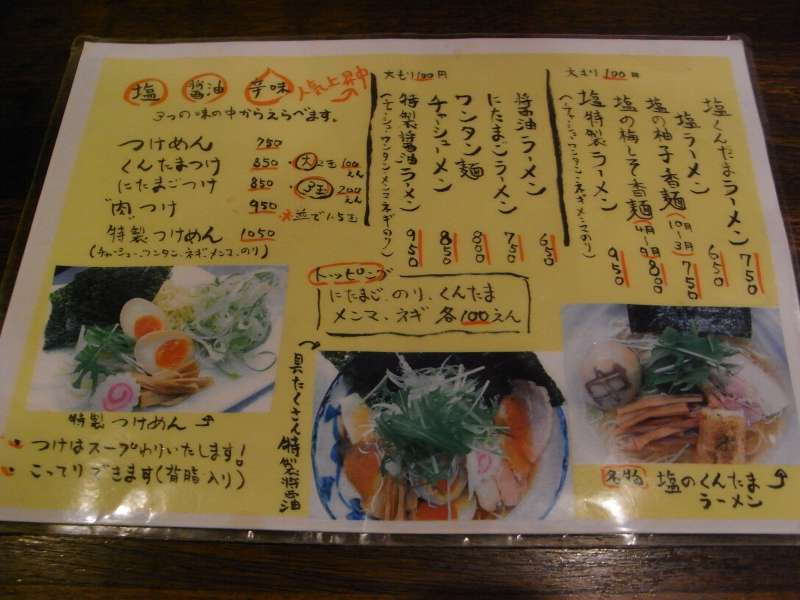 塩 醤油 辛味 人気上昇中
3つの味の中からえらべます。
つけめん 750
くんたまつけ 850
・大 2玉 100えん
にたまごつけ 850
・3玉 200えん
"肉"つけ 950
※並で1.5玉
特製つけめん 1050
(チャーシュー、ワンタン、ネギ、メンマ、のり)
特製つけめん
つけはスープわりいたします!
こってりできます(背脂入り)
大もり100円
醤油ラーメン 650
にたまごラーメン 750
ワンタン麺 800
チャーシューメン 850
特製醤油ラーメン 950
(チャーシュー、ワンタン、メンマ、ネギ、のり)
トッピング
にたまご、のり、くんたま
メンマ、ネギ 各100えん
具たくさん特製醤油
大もり100円
塩くんたまラーメン 750
塩ラーメン 650
塩の柚子香麺(10月〜3月) 750
塩の梅しそ香麺(4月〜9月) 800
塩特製ラーメン 950
(チャーシュー、ワンタン、ネギ、メンマ、のり)
名物 塩のくんたま
ラーメン